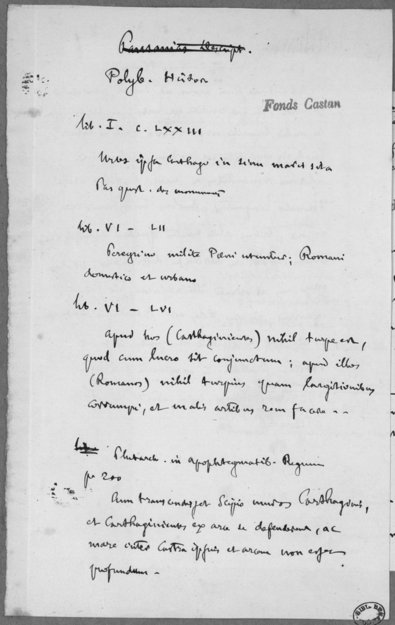 Pausanias Descript.
Polyb. Histor
Fonds Castan
lib. I. c. LXXIII
Urbs ipsa Carthago in sinu maris sita
Pas quest. des monuments
lib. VI - LII
Peregrino milite Pœni utuntur; Romani
domestico et urbano
lib. VI - LVI
apud hos (Carthaginienses) nihil turpe est,
quod cum lucro sit conjunctum; apud illos
(Romanos) nihil turpius quam largitionibus
corrumpi, et malis artibus rem facere - -
Plutarch. in apophtegmatib. Regum
p. 200
Cum transcendisset Scipio muros Carthaginis,
et Carthaginienses ex arce se defenderent, ac
mare inter castra ipsius et arcem non esset
profundum -